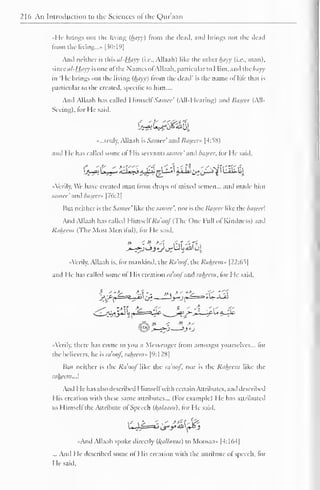 216 An Introduction to the Sciences of the Qur'aan
«He brings out the living (hayy) from the dead, and brings out the dead
from the living...» [30:19]
And neither is this al-Hayy (i.e., Allaah) like the other hayy (i.e., man),
since al-Hayy is one of the Names of Allaah, particular to Him, and the hayy
in 'He brings out the living (hayy) from the dead' is the name of life that is
particular to the created, specific to him....
And Allaah has called Himself Samee' (All-Hearing) and Baseer (All-
Seeing), for He said,
إن الله كان سميعا بصيرا
«...verily, Allaah is Samee' and Baseer» [4:58]
and He has called some of His servants samee' and baseer, for He said,
إنا خلقنا الإنسان من نطفة أمشاج نبتليه فجعلناه سميعا بصيرا
«Verily, We have created man from drops of mixed semen... and made him
samee' and baseer» [76:2]
But neither is the Samee' like the samee', nor is the Baseer like the baseer!
And Allaah has called Himself Ra'oof (The One Full of Kindness) and
Raheem (The Most Merciful), for He said,
إن الله بالناس لرءوف رحيم
«Verily, Allaah is, for mankind, the Ra'oof, the Raheem» [22:65]
and He has called some of His creation ra'oof and raheem, for He said,
لقد جاءكم رسول من أنفسكم عزيز
عليه ما عنتم حريص عليكم بالمؤمنين
رءوف رحيم
«Verily, there has come to you a Messenger from amongst yourselves... for
the believers, he is ra'oof, raheem» [9:128]
But neither is the Ra'oof like the ra'oof, nor is the Raheem like the
raheem...!
And He has also described Himself with certain Attributes, and described
His creation with these same attributes... (For example) He has attributed
to Himself the Attribute of Speech (kalaam), for He said,
وكلم الله موسى تكليما
«And Allaah spoke directly (kallama) to Moosaa» [4:164]
... And He described some of His creation with the attribute of speech, for
He said,